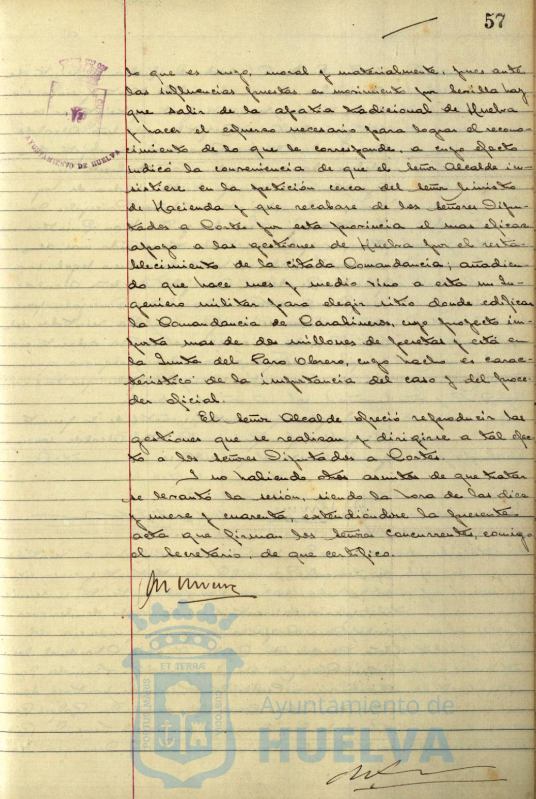 57
AYUNTAMIENTO DE HUELVA
lo que es suyo, moral y materialmente, pues ante
las influencias puestas en movimiento por Sevilla hay
que salir de la apatia tradicional de Huelva
y hacer el esfuerzo necesario para lograr el recono-
cimiento de lo que le corresponde, a cuyo efecto
indicó la conveniencia de que el Señor Alcalde in-
sistiere en la petición cerca del Señor Ministro
de Hacienda y que recabase de los Señores Dipu-
tados a Cortes por esta provincia el mas eficaz
apoyo a las gestiones de Huelva por el resta-
blecimiento de la citada Comandancia; añadien-
do que hace mes y medio vino a esta un In-
geniero militar para elegir sitio donde edificar
la Comandancia de Carabineros, cuyo proyecto im-
porta mas de dos millones de pesetas y está en
la Junta del Paro Obrero, cuyo hecho es carac-
teristico de la importancia del caso y del proce-
der oficial.
El Señor Alcalde ofreció reproducir las
gestiones que se realizan y dirigirse a tal efec-
to a los Señores Diputados a Cortes.
Y no habiendo otros asuntos de que tratar
se levantó la sesión, siendo la hora de las diez
y nueve y cuarenta, extendiéndose la presente
acta que firman los Señores concurrentes, conmigo
el Secretario, de que certifico.
ET TERRÆ
PORTUS MARIS
CUSTODIA
Ayuntamiento de
HUELVA